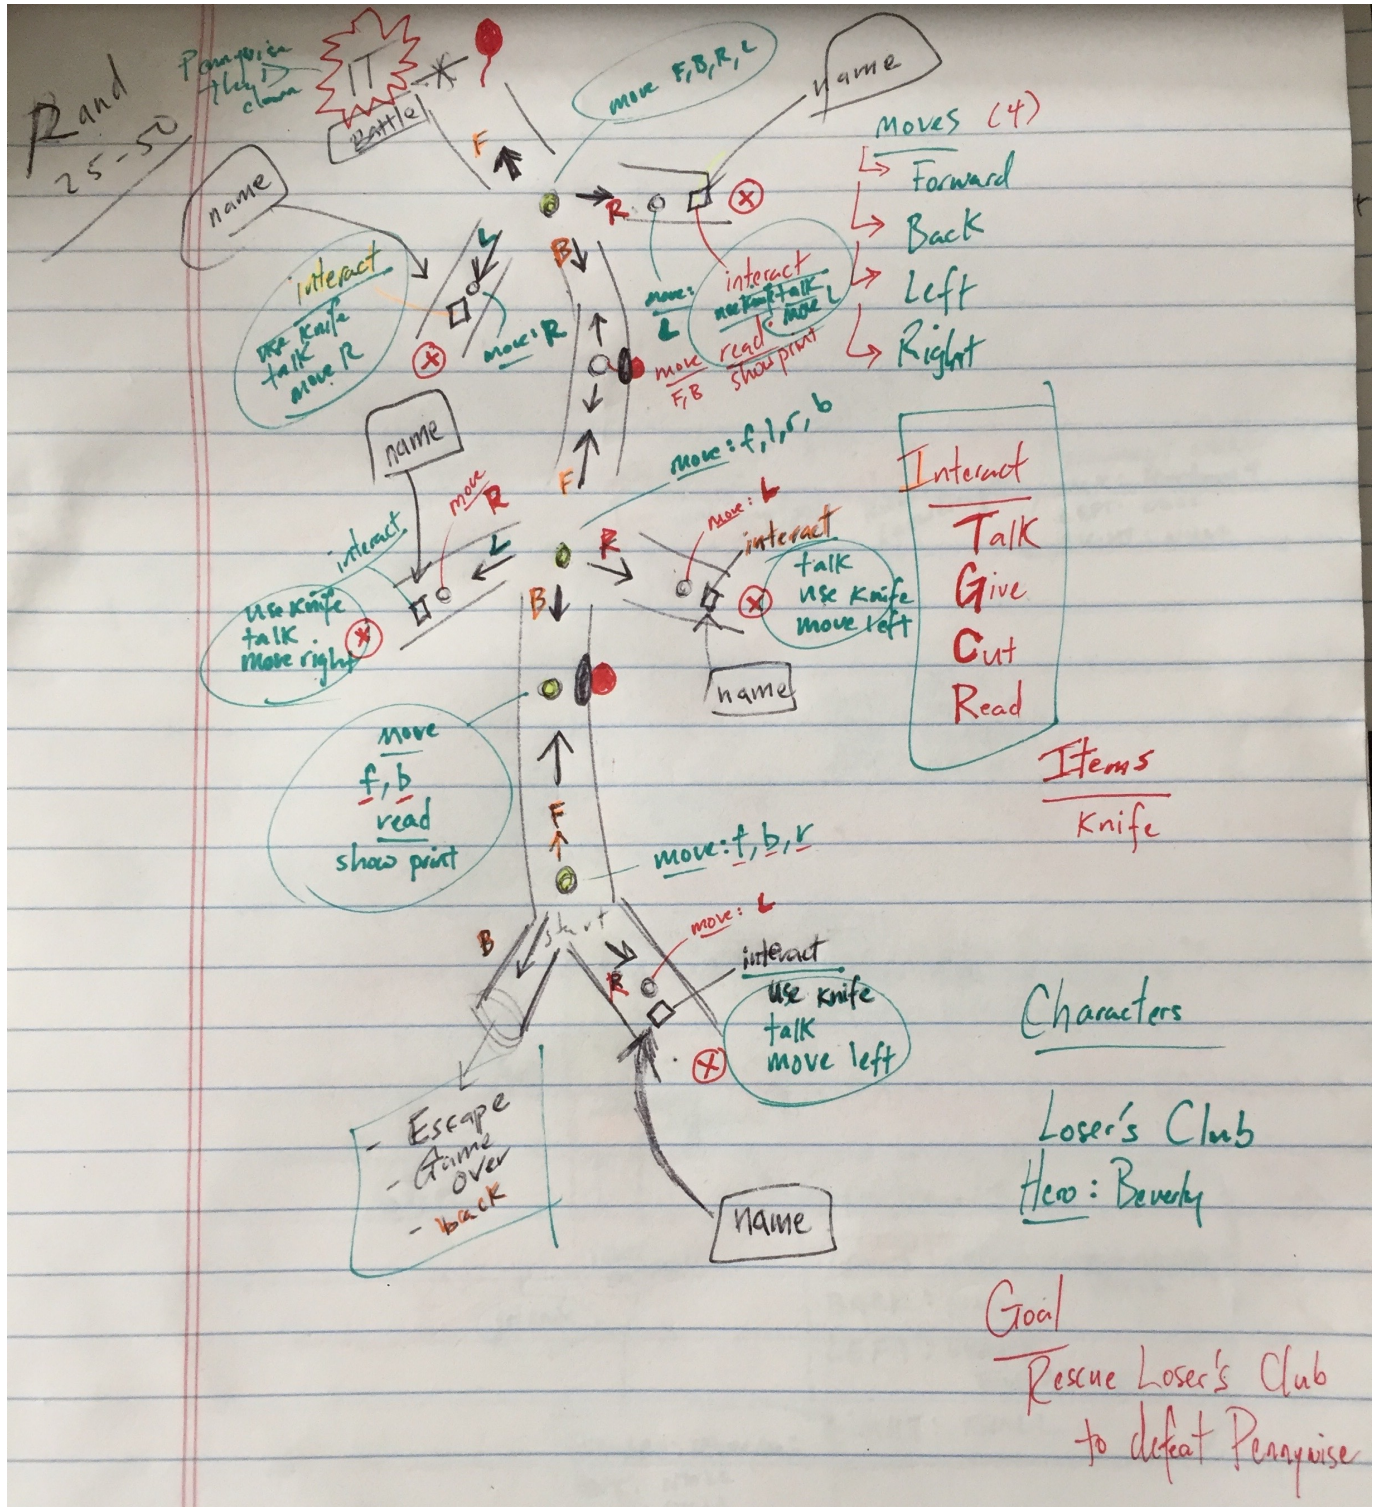 Rand
25-50
Pennywise
the
clown
IT
Battle
F
move F,B,R,L
name
moves (4)
Forward
Back
Left
Right
name
L
B
R
interact
use knife
talk
move R
move: R
move:
L
interact
use knife talk
move L
read
show print
move
F,B
name
move
R
F
move: f,l,r,b
interact
L
R
move: L
interact
use knife
talk
move right
B
talk
use knife
move left
name
Interact
Talk
Give
Cut
Read
Items
Knife
move
f,b
read
show print
F
move: f,b,r
start
B
R
move: L
interact
use knife
talk
move left
Escape
- Game
over
- back
name
Characters
Loser's Club
Hero: Beverly
Goal
Rescue Loser's Club
to defeat Pennywise